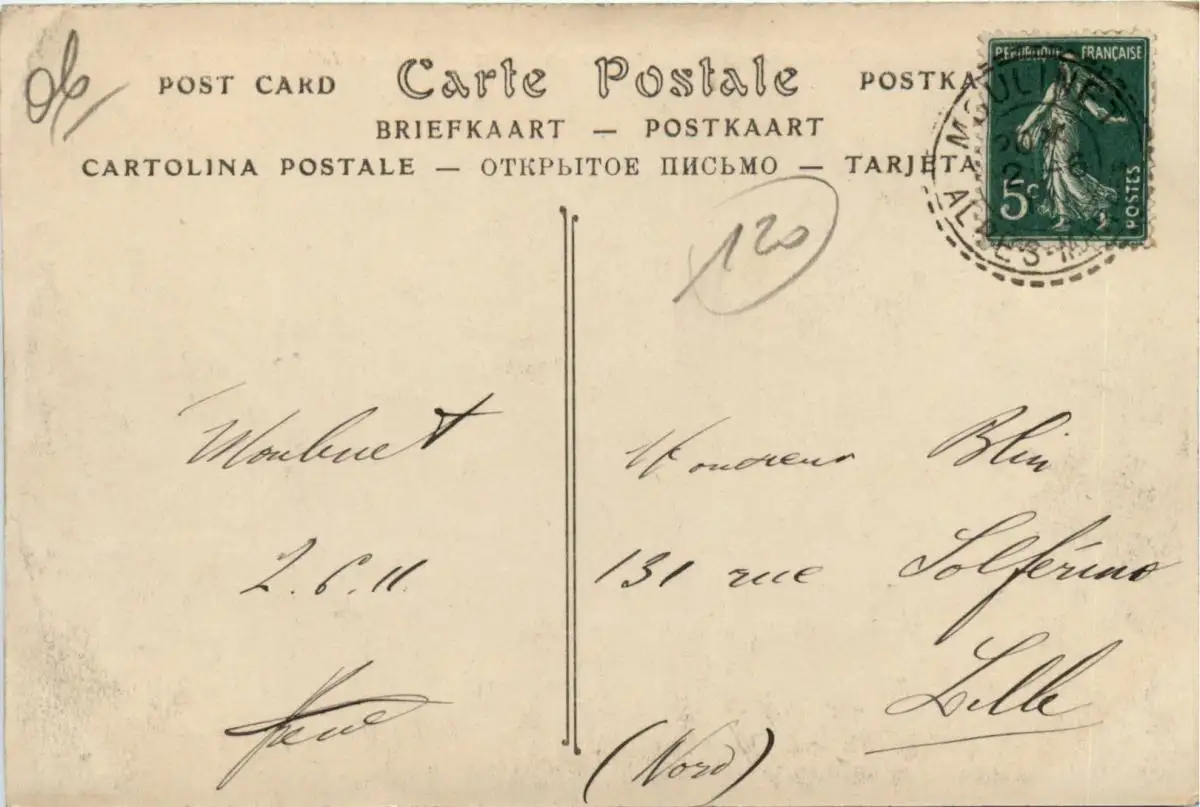 POST CARD Carte Postale POSTKA
BRIEFKAART — POSTKAART
CARTOLINA POSTALE — ОТКРЫТОЕ ПИСЬМО — TARJETA
RÉPUBLIQUE FRANÇAISE
5c
POSTES
MOULINET
ALPES-M
120
Moulinet
2.6.11.
Monsieur Blin
131 rue Solférino
Lille
(Nord)